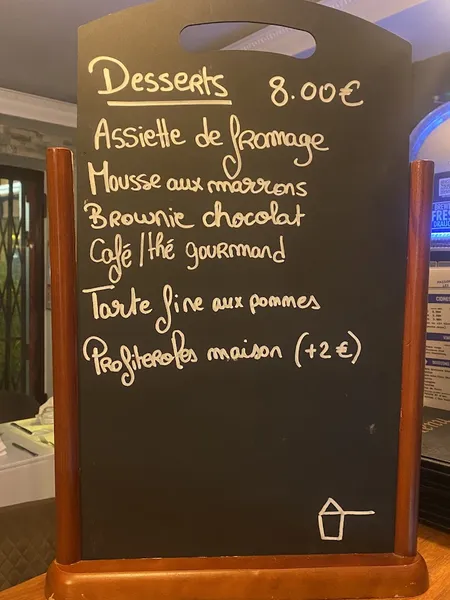 Desserts 8.00€
Assiette de fromage
Mousse aux marrons
Brownie chocolat
Café/thé gourmand
Tarte fine aux pommes
Profiteroles maison (+2€)